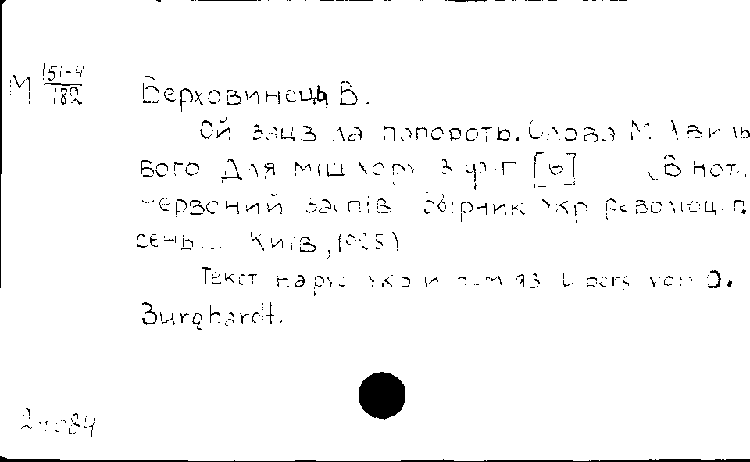 М 151-4/182
Верховинець В.
Ой зацвіла папороть. Слова М.
вого Для міш хору з ф-п [6] (В нот.
червоний заспів Збірник укр революц. п
сень... Київ, 1925)
Текст на рус укр и нем яз Übers von O.
Burghardt.